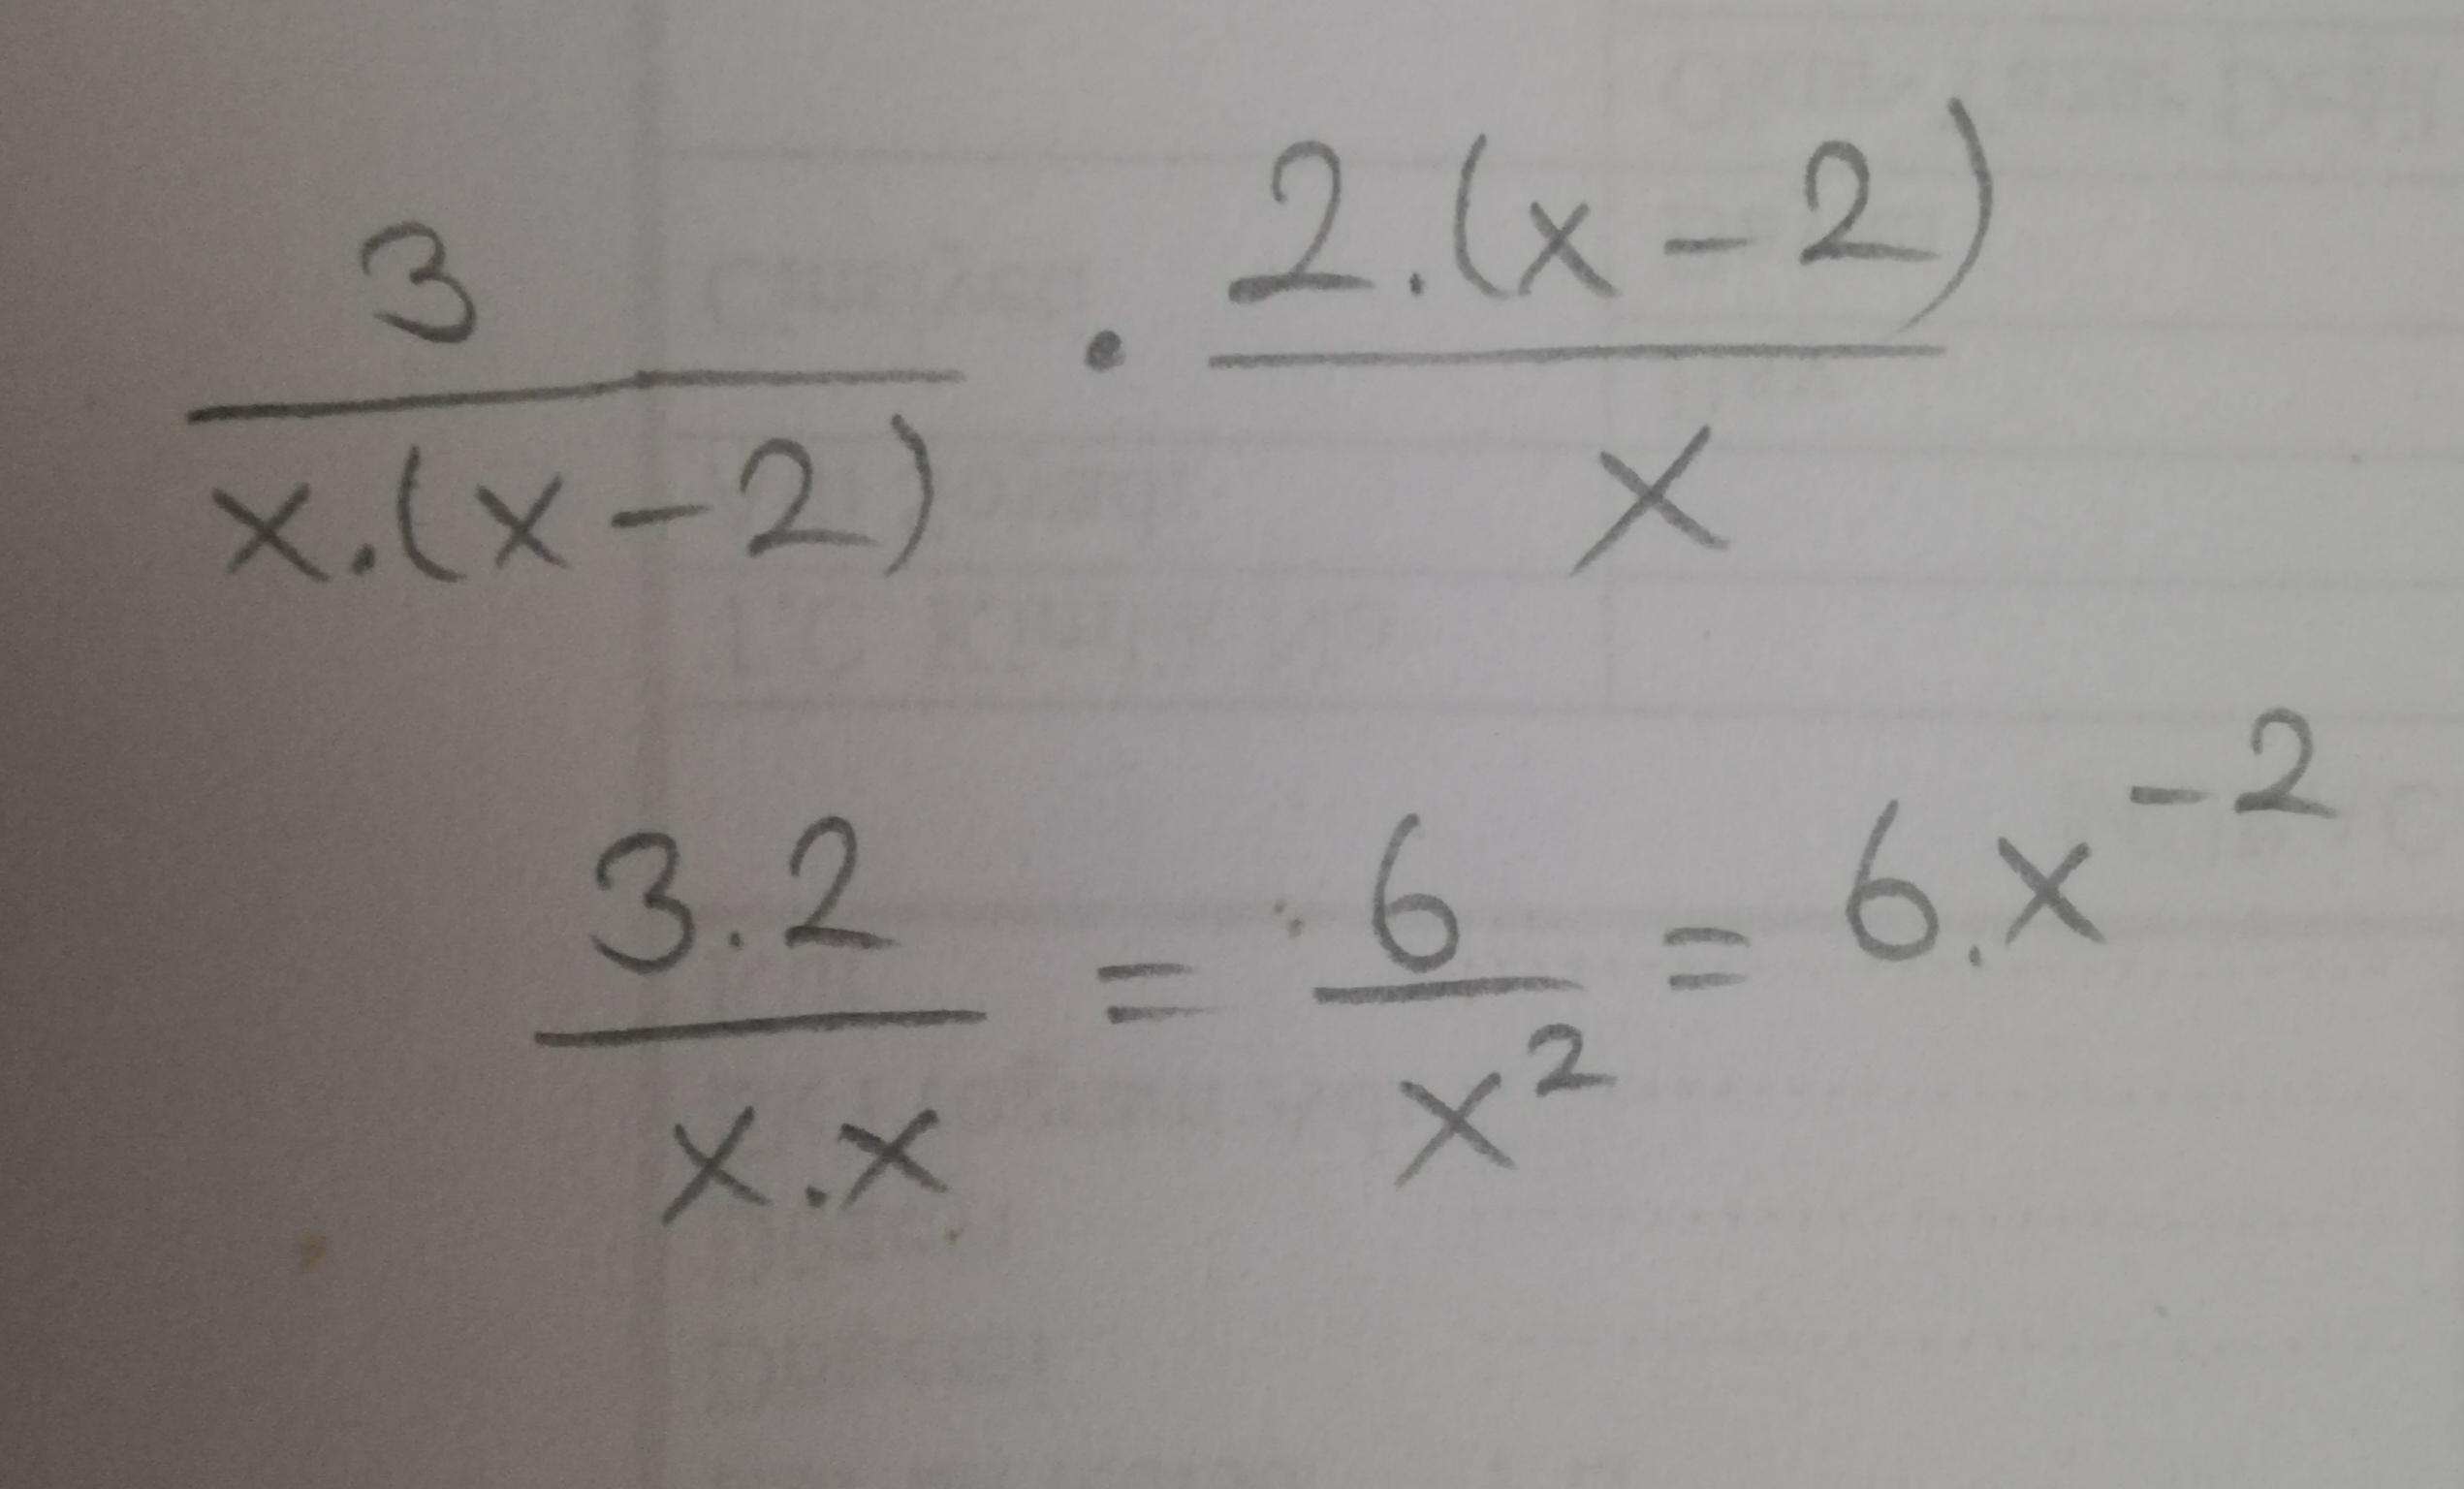 3/(x.(x-2)) . 2.(x-2)/x
3.2/(x.x) = 6/x² = 6.x⁻²